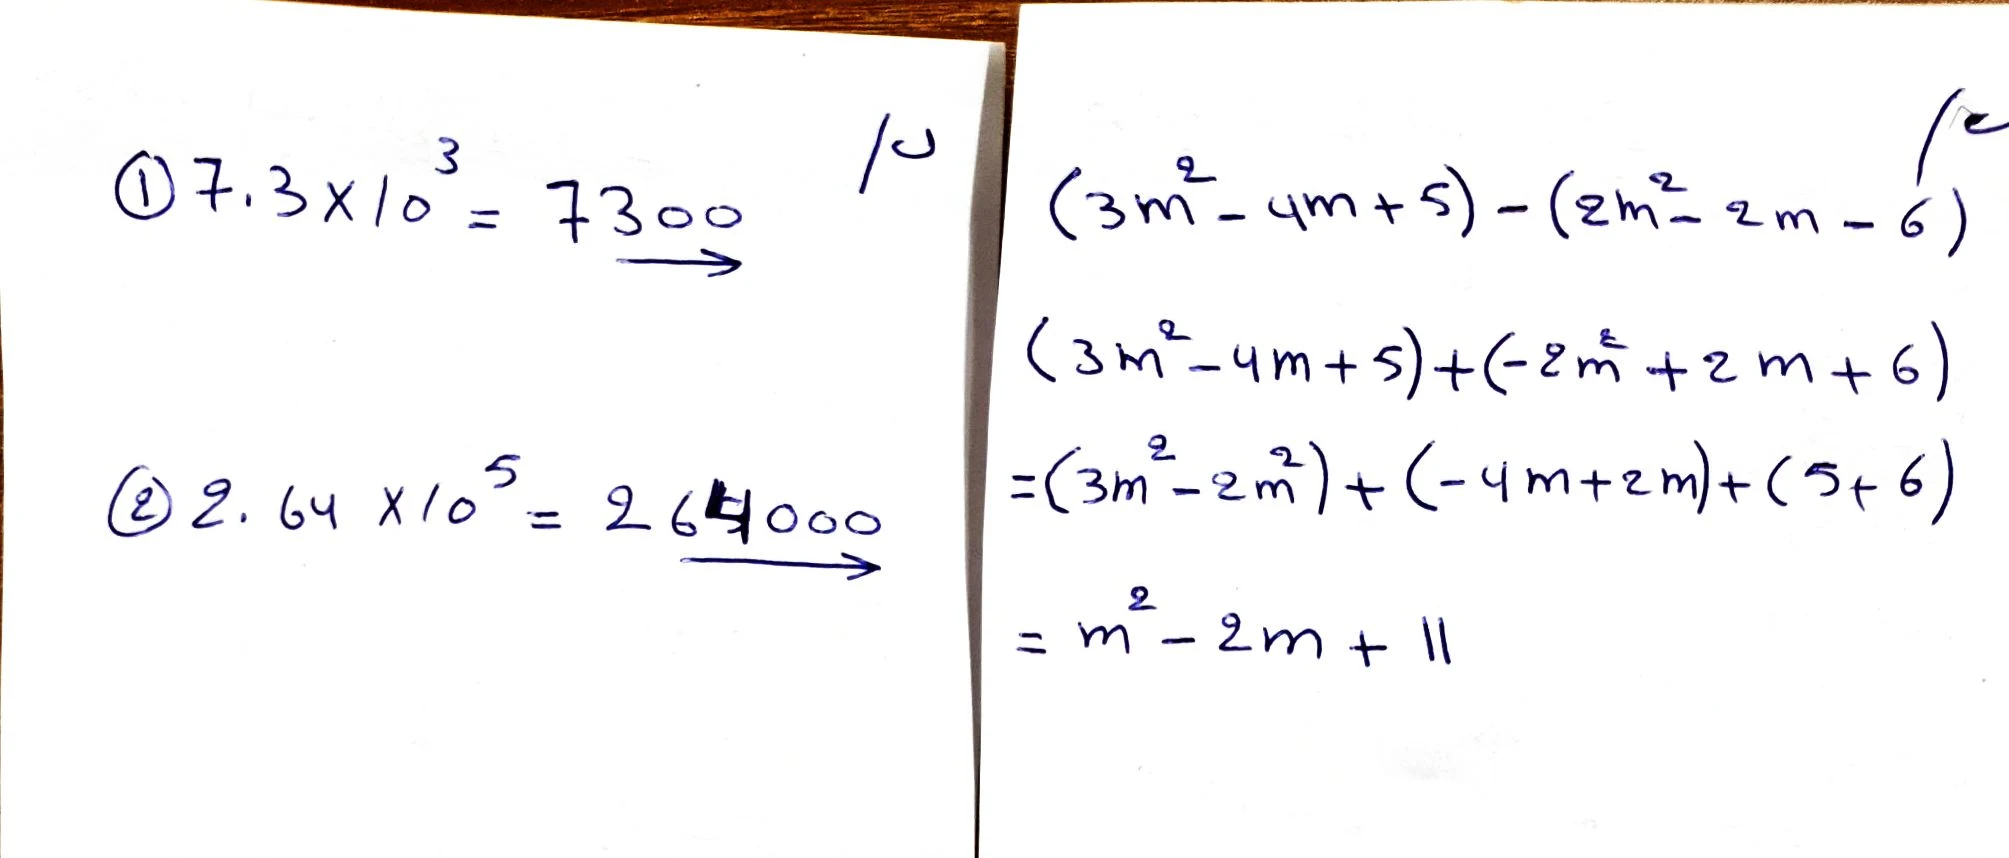 ① 7.3 × 10³ = 7300
② 2.64 × 10⁵ = 264000
(3m² - 4m + 5) - (2m² - 2m - 6)
(3m² - 4m + 5) + (-2m² + 2m + 6)
= (3m² - 2m²) + (-4m + 2m) + (5 + 6)
= m² - 2m + 11